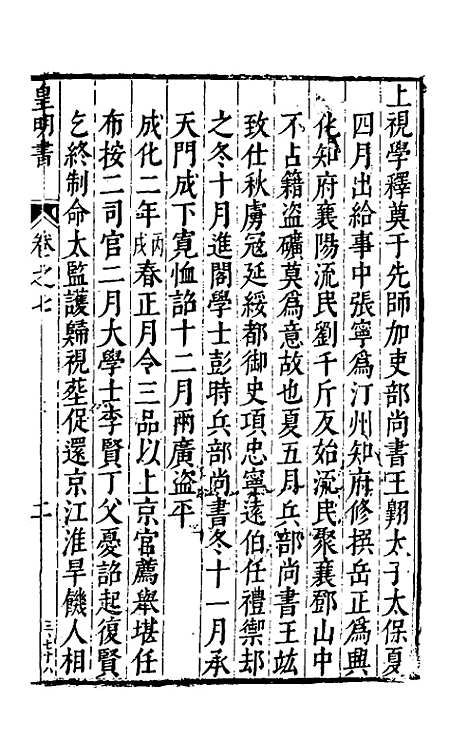 上視學釋奠于先師加吏部尚書王翺太子太保夏
四月出給事中張寧爲汀州知府修撰岳正爲興
化知府襄陽流民劉千斤反始流民聚襄鄧山中
不占籍盜礦莫爲意故也夏五月兵部尚書王竑
致仕秋虜冦延綏都御史項忠寧遠伯任禮禦却
之冬十月進閣學士彭時兵部尚書冬十一月承
天門成下寛恤詔十二月兩廣盜平
成化二年丙戌春正月令三品以上京官薦舉堪任
布按二司官二月大學士李賢丁父憂詔起復賢
乞終制命太監護歸視塟促還京江淮旱饑人相
皇明書
卷之七
二
三七十八